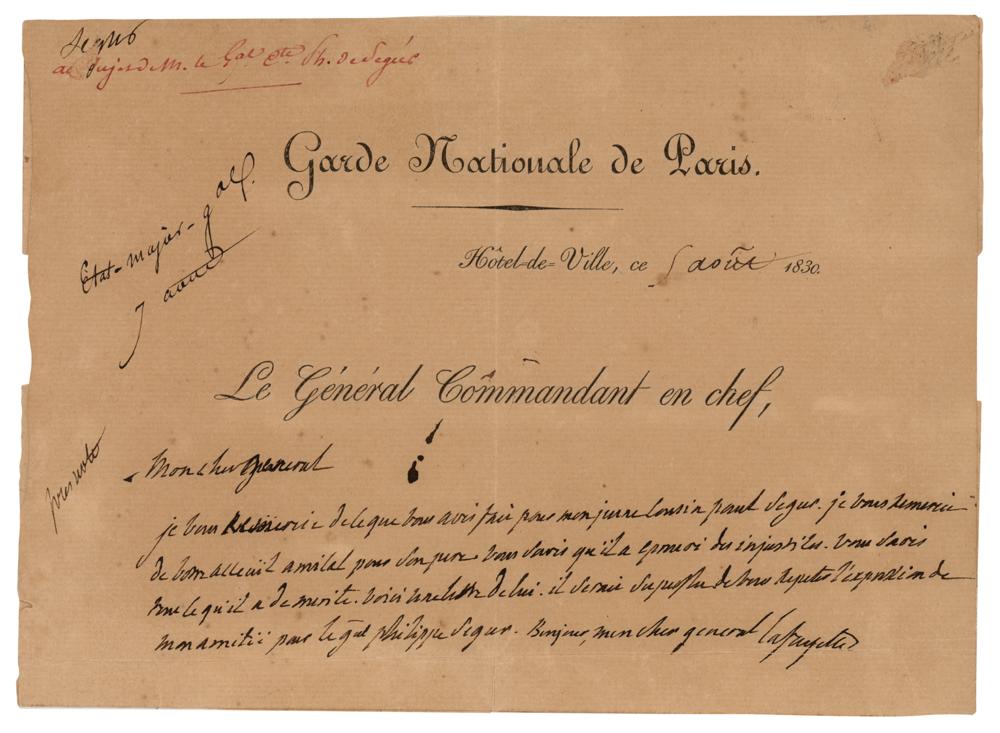 Segur
au sujet de M. le Gal Cte Ph. de Ségur
Garde Nationale de Paris.
Etat-major-gal.
7 aout
Hôtel-de-Ville, ce 5 août 1830.
Le Général Commandant en chef,
Mon cher general
je vous remercie de ce que vous avés fait pour mon jeune cousin paul Segur. je vous remercie
de votre acceuil amical pour son pere vous savés qu'il a eprouvé des injustices. vous savés
tout ce qu'il a de merite. voici une lettre de lui. il serait superflu de vous repeter l'expression de
mon amitié pour le gal philippe Segur. Bonjour, mon cher general Lafayette